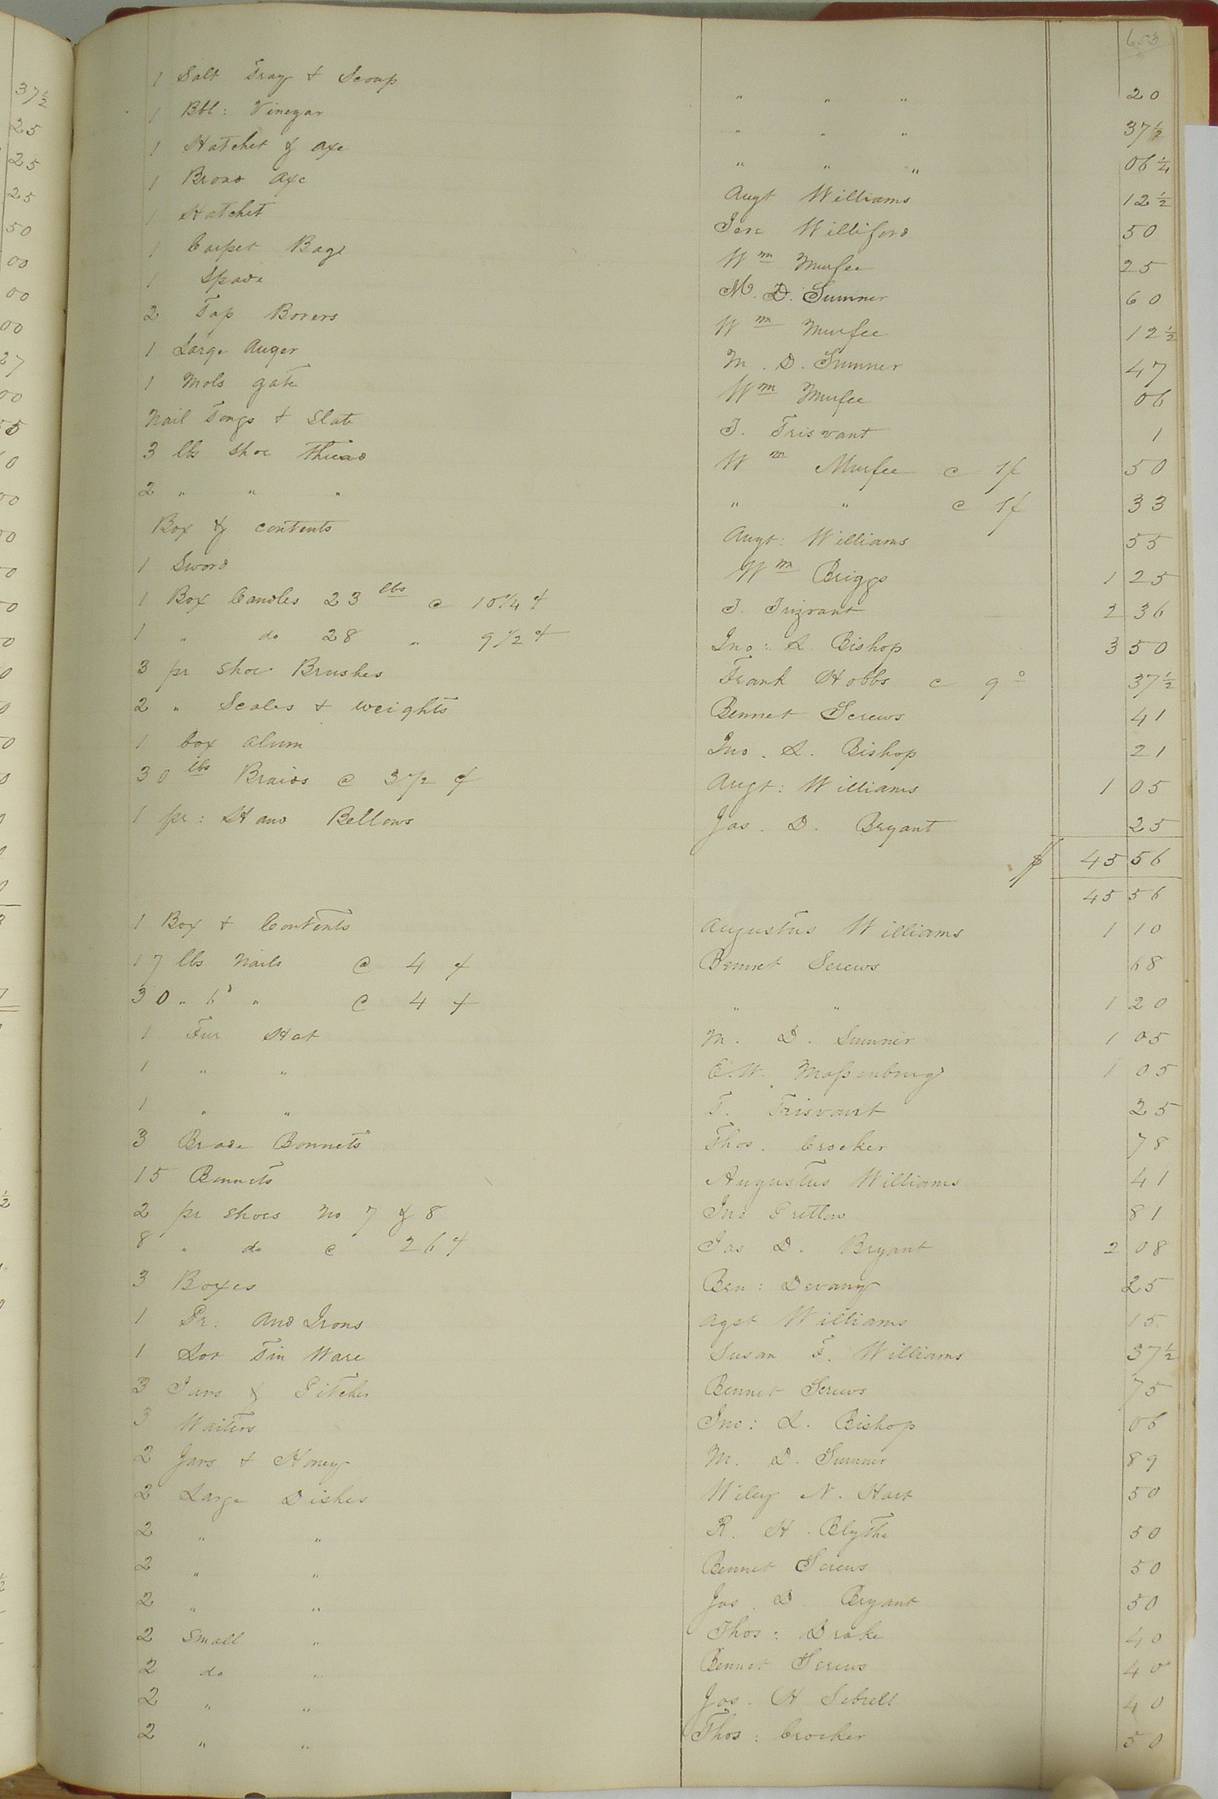 653
1 Salt Tray & Scoup " " " 20
1 Bbl: Vinegar " " " 37½
1 Hatchet & axe " " " 06¼
1 Broad axe Augt Williams 12½
1 Hatchet Jesse Williford 50
1 Carpet Bag Wm Murfee 25
1 Spade M. D. Sumner 60
2 Tap Borers Wm Murfee 12½
1 Large Auger M. D. Sumner 47
1 Mols gate Wm Murfee 06
Nail Tongs & Slate T. Trisvant 1
3 lbs Shoe Thread Wm Murfee c 1/ 50
2 " " " " " c 1/ 33
Box & contents Augt: Williams 55
1 Sword Wm Briggs 1 25
1 Box Candles 23 lbs @ 10¼ ¢ T. Trizvant 2 36
1 " do 28 " 9½ ¢ Jno: L. Bishop 3 50
3 pr Shoe Brushes Frank Hobbs c 9 37½
2 " Scales & weights Bennet Screws 41
1 box alum Jno. L. Bishop 21
30 lbs Braids @ 3½ ¢ Augt: Williams 1 05
1 pr: Hand Bellows Jas. D. Bryant 25
$ 45 56
45 56
1 Box & Contents Augustus Williams 1 10
17 lbs Nails @ 4 ¢ Bennet Screws 68
30 " 6d " @ 4 ¢ " " 1 20
1 Fur Hat M. D. Sumner 1 05
1 " " C. W. Massenburg 1 05
1 " " T. Trisvant 25
3 Braid Bonnets Thos. Crocker 78
15 Bonnets Augustus Williams 41
2 pr shoes No 7 & 8 Jno 81
8 " do @ 26 ¢ Jas D. Bryant 2 08
3 Boxes Ben: Devany 25
1 Pr: And Irons Agst Williams 15
1 Lot Tin Ware Susan F. Williams 37½
3 Jars & Pitcher Bennet Screws 75
3 Waiters Jno: L. Bishop 06
2 Jars & Honey M. D. Sumner 89
2 Large Dishes Wiley N. Hart 50
2 " " R. H. Blythe 50
2 " " Bennet Screws 50
2 " " Jas D. Bryant 50
2 Small " Thos: Drake 40
2 do " Bennet Screws 40
2 " " Jas. H Sebrell 40
2 " " Thos: Crocker 50